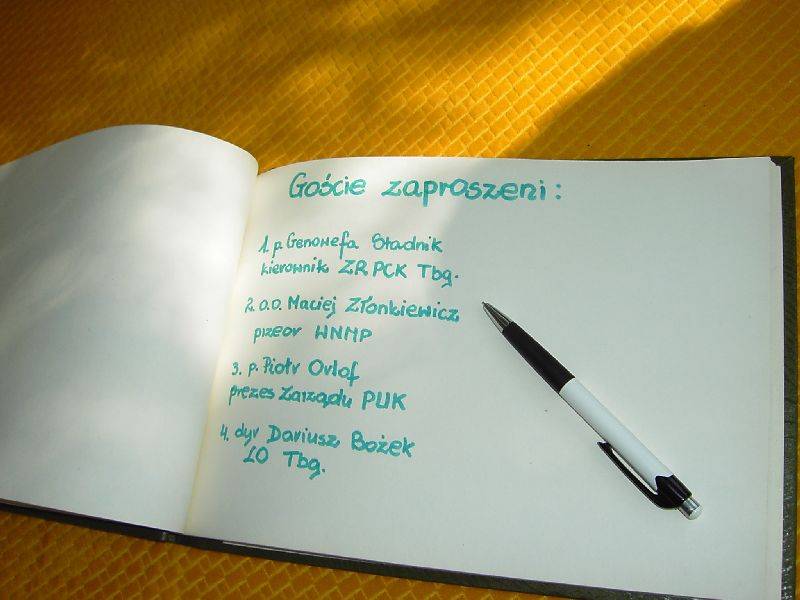 Goście zaproszeni:
1. p. Genowefa Stadnik
kierownik ZR PCK Tbg.
2. o.o. Maciej Złonkiewicz
przeor WNMP
3. p. Piotr Orlof
prezes Zarządu PUK
4. dyr Dariusz Bożek
LO Tbg.